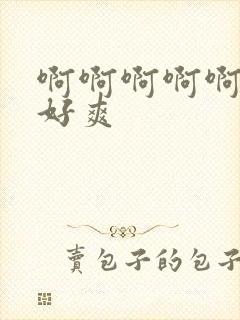 啊啊啊啊啊
好爽
賣包子的包子